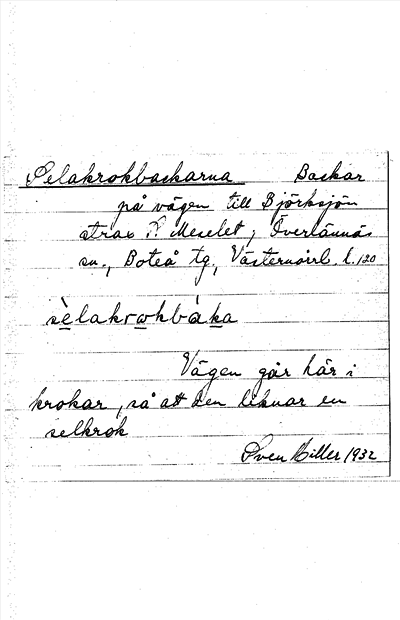 Selakrokbackarna Backar
på vägen till Björksjön
strax N Meselet, Överlännäs
sn., Boteå tg, Västernorrl. l. 120
sèlakrokbàka
Vägen går här i
krokar, så att den liknar en
selkrok
Sven Hiller 1932